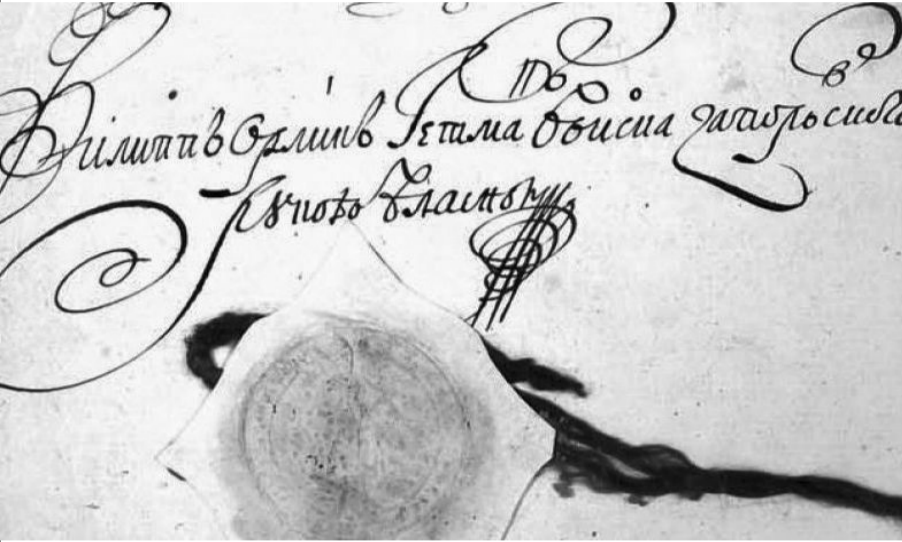 Филиппъ Орликъ Гетманъ Войска Запорожского
рукою власною